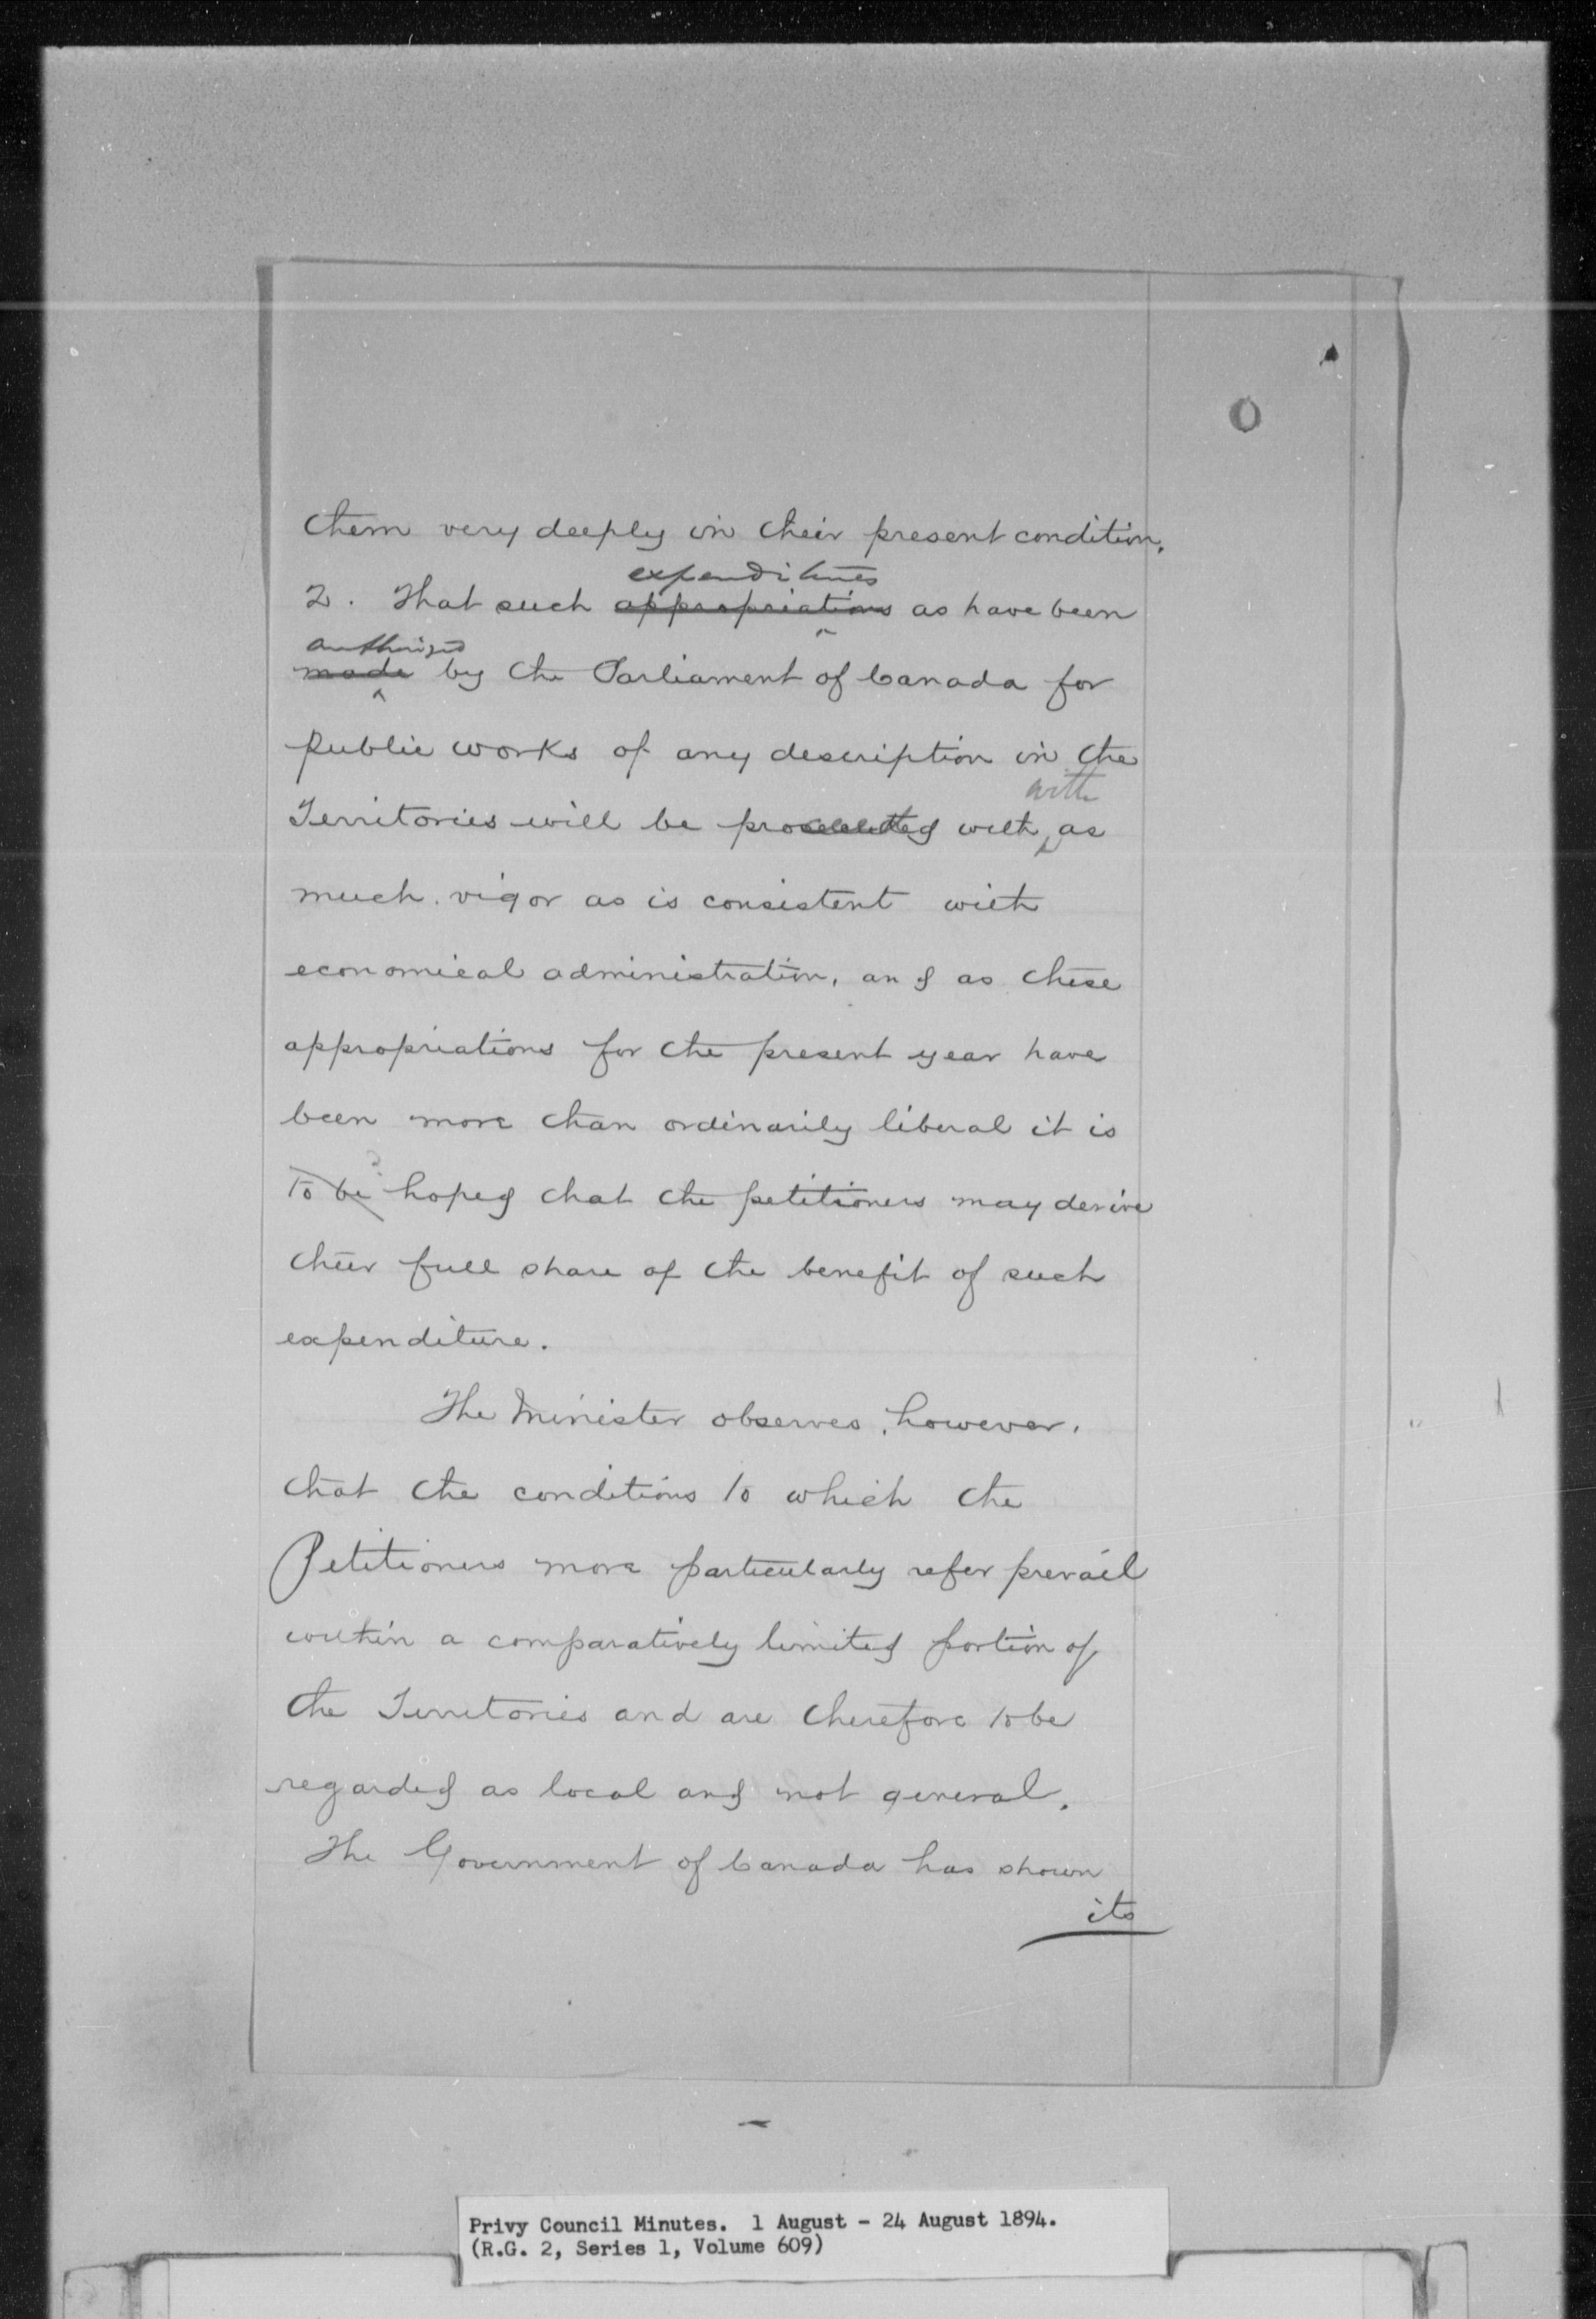 them very deeply in their present condition.
expenditures
2. That such appropriations as have been
authorized
made by the Parliament of Canada for
public works of any description in the
with
Territories will be proceeded with as
much vigor as is consistent with
economical administration, and as these
appropriations for the present year have
been more than ordinarily liberal it is
to be hoped that the petitioners may derive
their full share of the benefit of such
expenditure.
The Minister observes, however,
that the conditions to which the
Petitioners more particularly refer prevail
within a comparatively limited portion of
the Territories and are therefore to be
regarded as local and not general.
The Government of Canada has shown
its
Privy Council Minutes. 1 August - 24 August 1894.
(R.G. 2, Series 1, Volume 609)